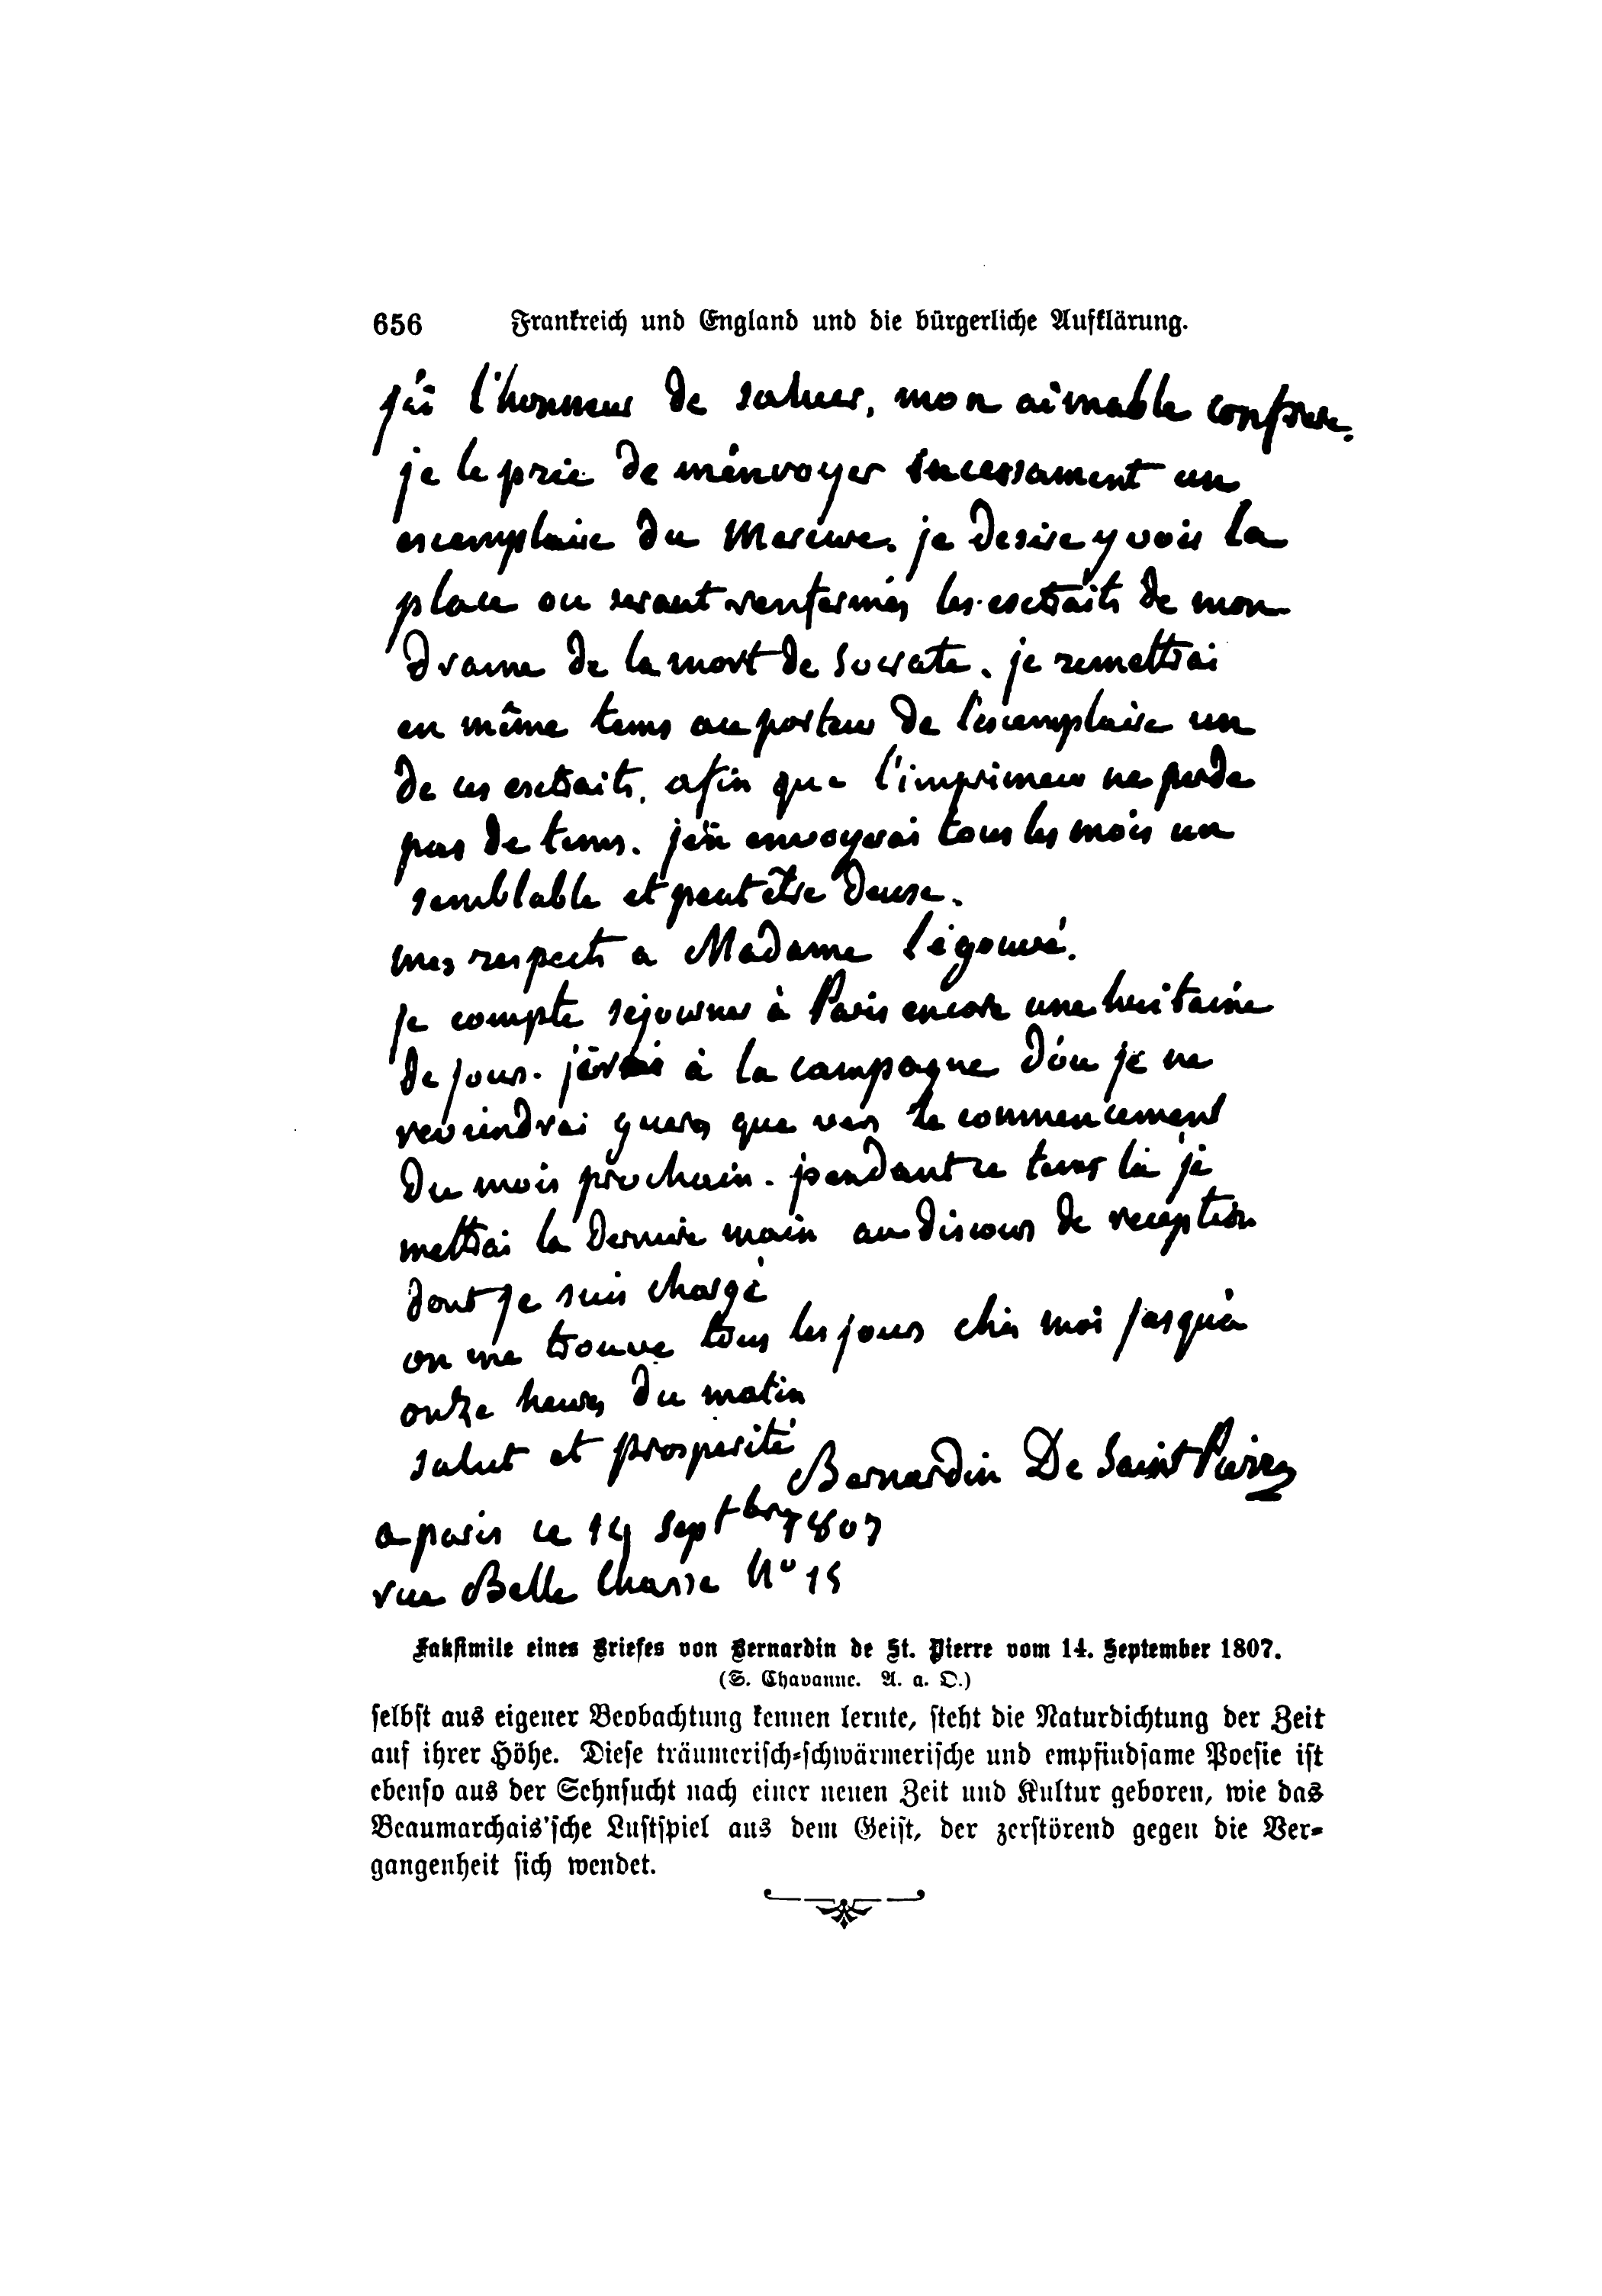 656 Frankreich und England und die bürgerliche Aufklärung.
j'ai l'honneur de saluer, mon aimable confrere.
je le prie de m'envoyer incessament un
exemplaire du Mercure. je desire y voir la
place ou seront renfermés les extraits de mon
drame de la mort de Socrate. je remettrai
en même tems au porteur de l'exemplaire un
de ces extraits, afin que l'imprimeur ne perde
pas de tems. j'en envoyerai tous les mois un
semblable et peut être deux.
mes respects a Madame Légouvé.
je compte sejourner à Paris encore une huitaine
de jours. j'irai à la campagne d'ou je ne
reviendrai gueres que vers le commencement
du mois prochain. pendant ce tems là je
mettrai la derniere main au discours de reception
dont je suis chargé
on me trouve tous les jours chés moi jusqu'à
onze heures du matin
salut et prosperité
Bernardin De Saint Pierre
a paris ce 14 septbre 1807
rue Belle Chasse No 15
Faksimile eines Briefes von Bernardin de St. Pierre vom 14. September 1807.
(S. Chavanne. A. a. O.)
selbst aus eigener Beobachtung kennen lernte, steht die Naturdichtung der Zeit
auf ihrer Höhe. Diese träumerisch-schwärmerische und empfindsame Poesie ist
ebenso aus der Sehnsucht nach einer neuen Zeit und Kultur geboren, wie das
Beaumarchais'sche Lustspiel aus dem Geist, der zerstörend gegen die Ver-
gangenheit sich wendet.